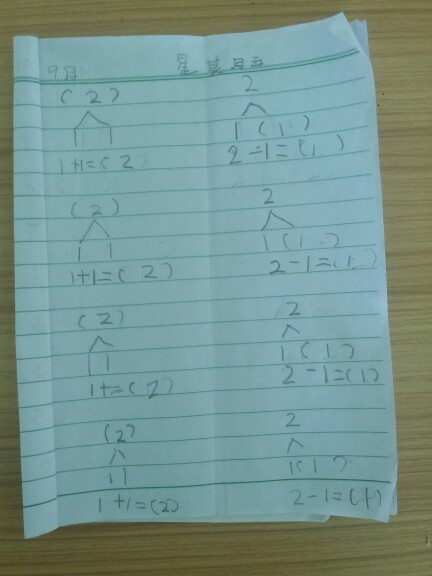 9月 星期五
(2) 2
1 1 1 (1)
1+1=(2 2-1=(1)
(2) 2
1 1 1 (1)
1+1=(2) 2-1=(1)
(2) 2
1 1 1 (1)
1+=(2) 2-1=(1)
(2) 2
1 1 1(1)
1+1=(2) 2-1=(1)